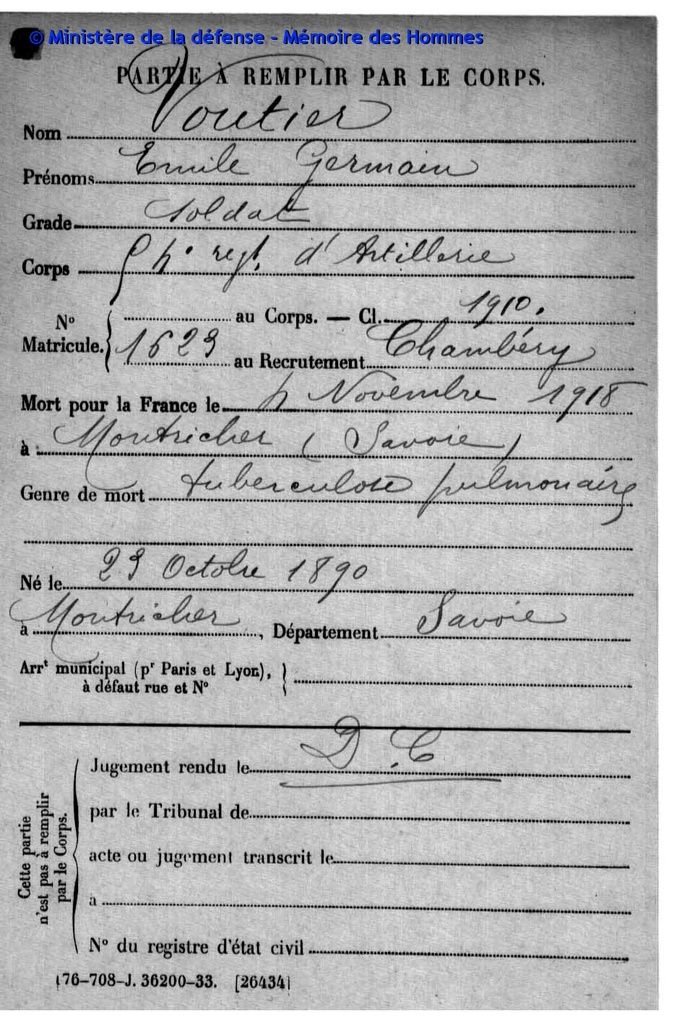 © Ministère de la défense - Mémoire des Hommes
PARTIE À REMPLIR PAR LE CORPS.
Nom Voutier
Prénoms Emile Germain
Grade Soldat
Corps régt. d'Artillerie
N° Matricule. au Corps. — Cl. 1910.
1623 au Recrutement Chambéry
Mort pour la France le 4 Novembre 1918
à Montricher (Savoie)
Genre de mort tuberculose pulmonaire
Né le 23 Octobre 1890
à Montricher, Département Savoie
Arrt municipal (pr Paris et Lyon),
à défaut rue et N°
Jugement rendu le D. C
par le Tribunal de
acte ou jugement transcrit le
à
N° du registre d'état civil
Cette partie
n'est pas à remplir
par le Corps.
176-708-J. 36200-33. [26434]